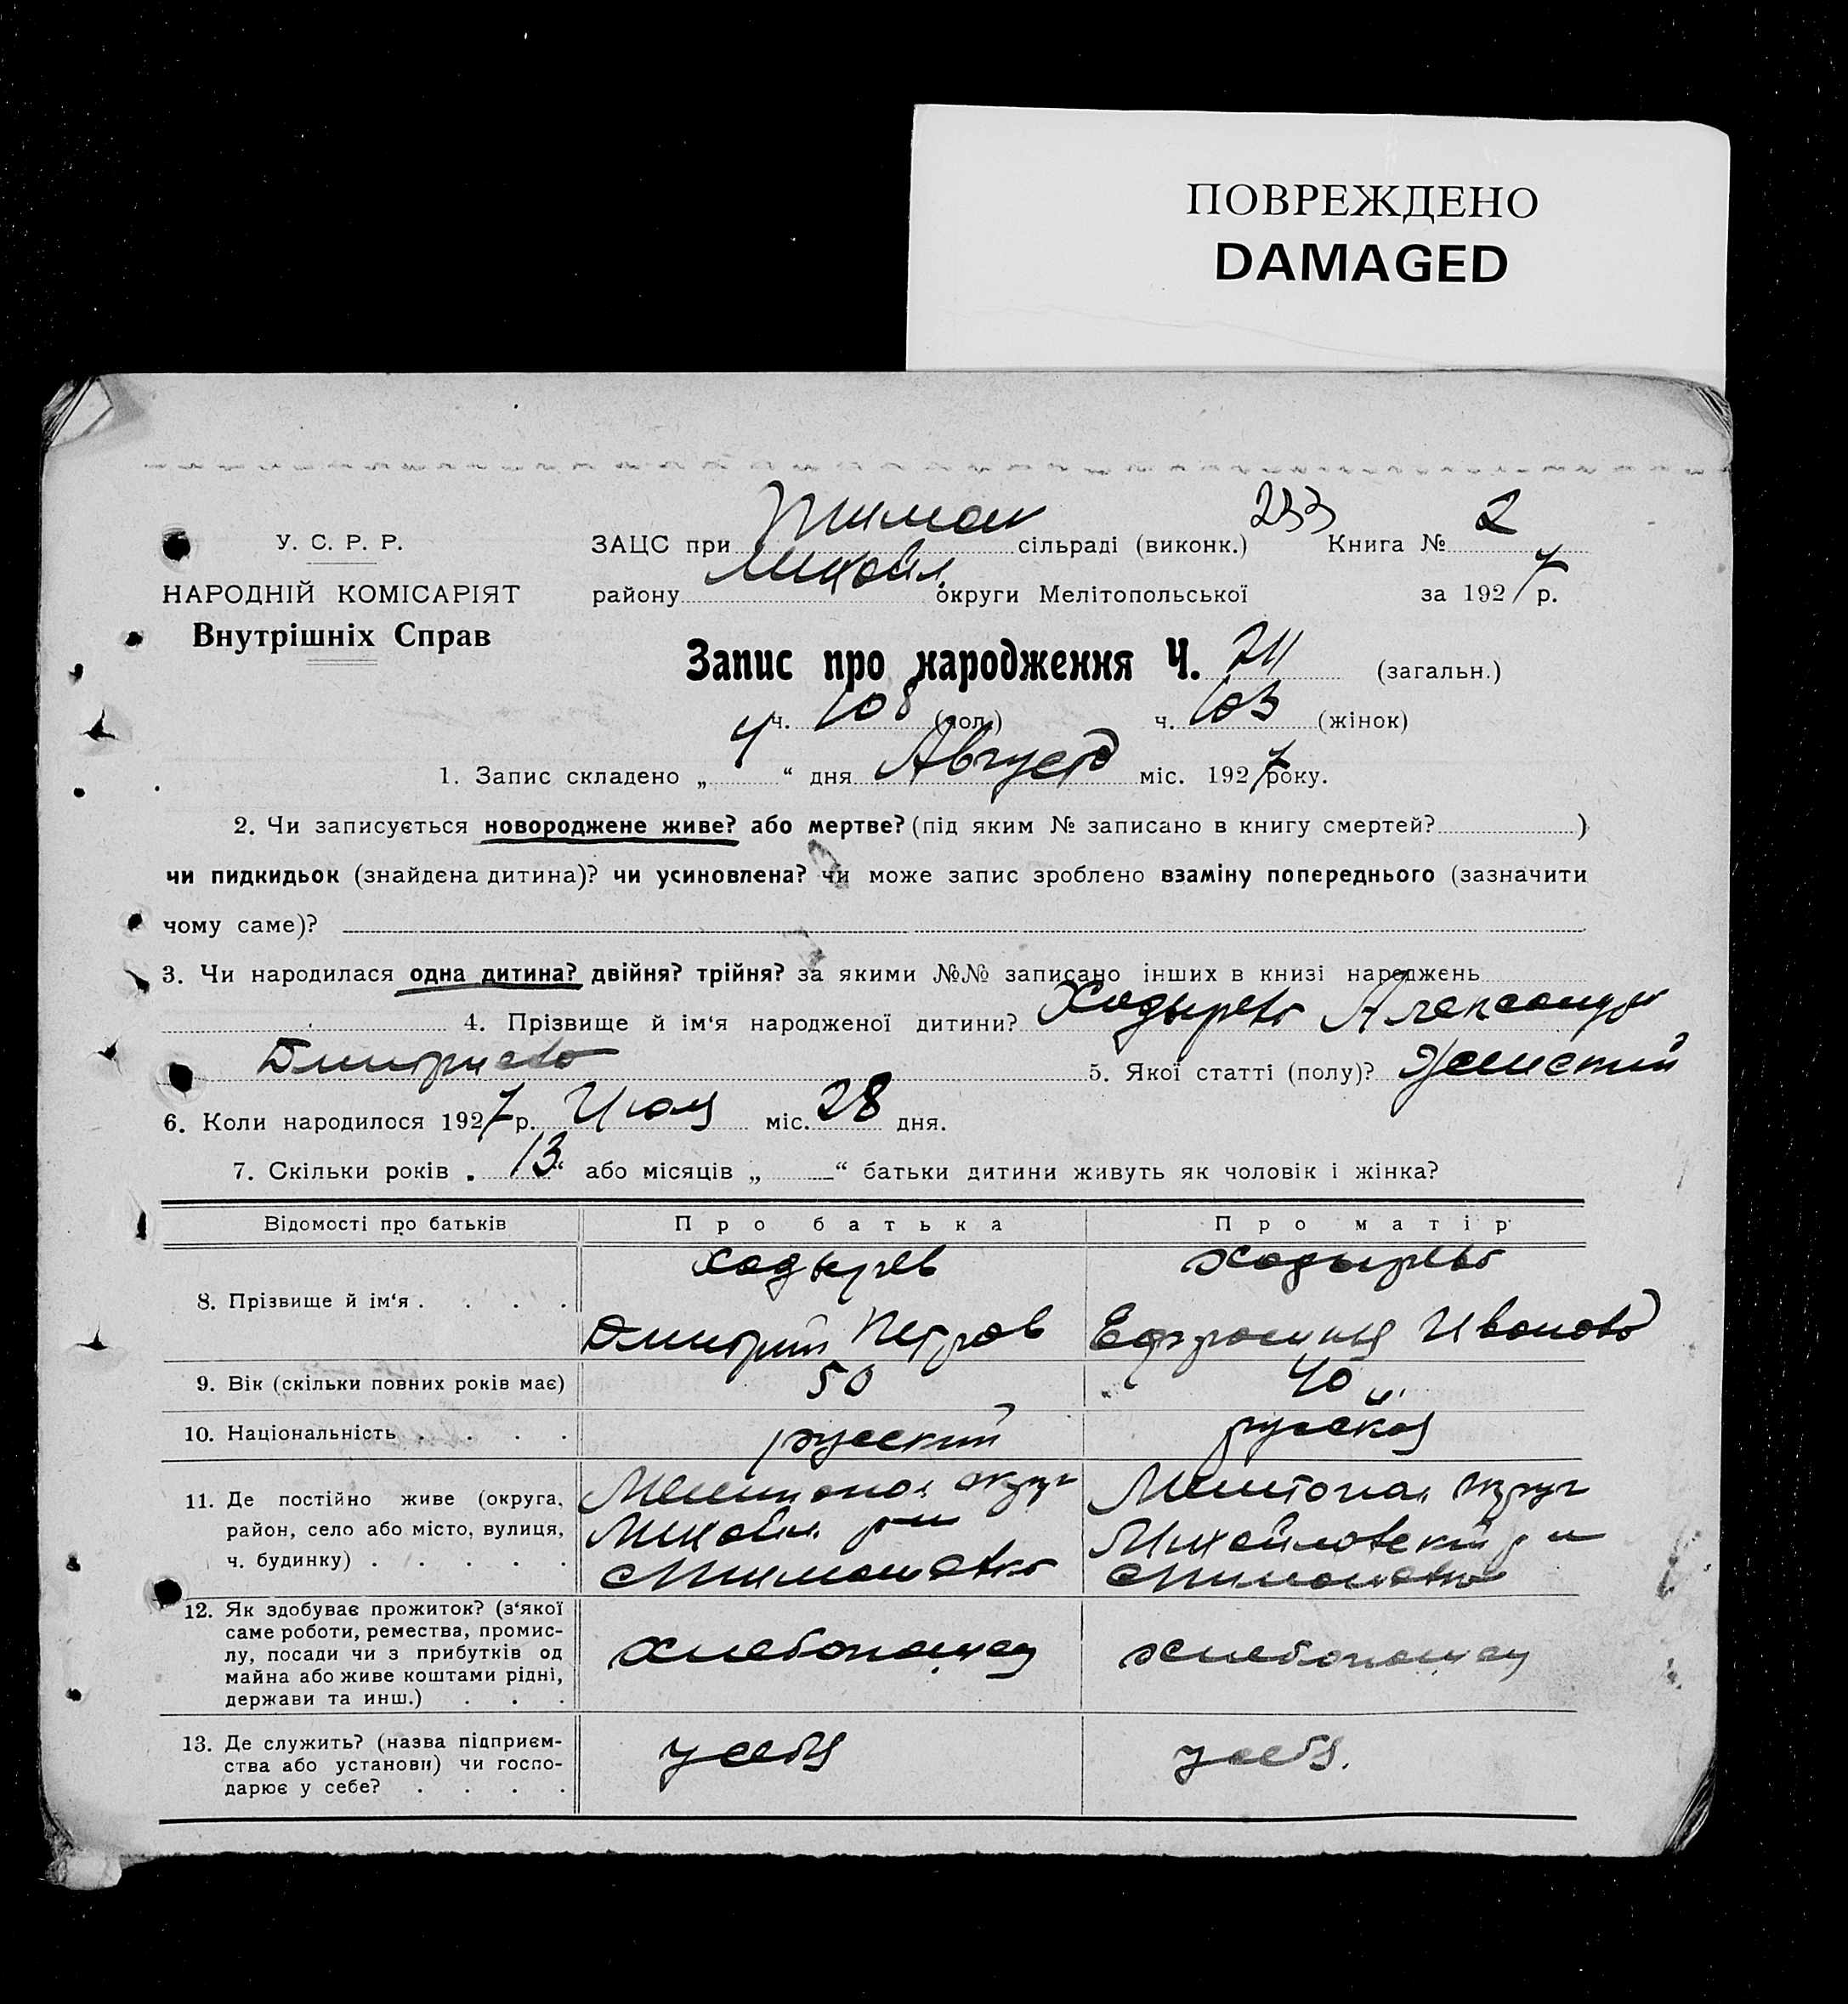 ПОВРЕЖДЕНО
DAMAGED
У. С. Р. Р.
НАРОДНІЙ КОМІСАРІЯТ
Внутрішніх Справ
ЗАЦС при Тимош сільраді (виконк.) 233 Книга № 2
району Михайл. округи Мелітопольської за 1927 р.
Запис про народження Ч. 211 (загальн.)
ч. 108 (чол.) ч. 103 (жінок)
1. Запис складено „ 4 “ дня Август міс. 1927 року.
2. Чи записується новороджене живе? або мертве? (під яким № записано в книгу смертей? )
чи пидкидьок (знайдена дитина)? чи усиновлена? чи може запис зроблено взаміну попереднього (зазначити
чому саме)?
3. Чи народилася одна дитина? двійня? трійня? за якими №№ записано інших в книзі народжень
4. Прізвище й ім‘я народженої дитини? Ходырева Александр
Дмитриева 5. Якої статті (полу)? Женский
6. Коли народилося 1927 р. Июля міс. 28 дня.
7. Скільки років „ 13 “ або місяців „ — “ батьки дитини живуть як чоловік і жінка?
Відомості про батьків Про батька Про матір
8. Прізвище й ім‘я . . . . Ходырев Дмитрий Петров Ходырева Ефросиния Иванова
9. Вік (скільки повних років має) 50 40
10. Національність . . . . русский русская
11. Де постійно живе (округа, район, село або місто, вулиця, ч. будинку) . . . . . Мелитопол. округ Михайл. р-н с Тимошовка Мелитопол. округ Михайловский р н с Тимошовка
12. Як здобуває прожиток? (з‘якої саме роботи, ремества, промислу, посади чи з прибутків од майна або живе коштами рідні, держави та инш.) . . . хлебопашец хлебопашец
13. Де служить? (назва підприємства або установи) чи господарює у себе? . . . . у себя у себя.